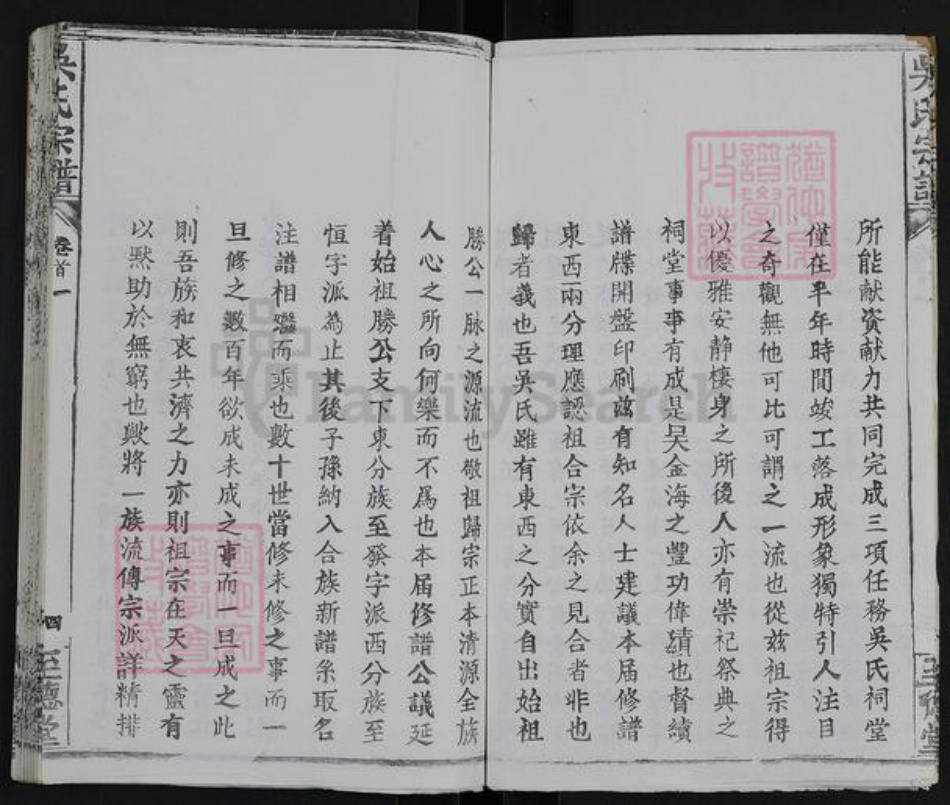 所能献资献力共同完成三項任務吳氏祠堂
僅在半年時間竣工落成形象獨特引人注目
之奇觀無他可比可謂之一流也從兹祖宗得
以優雅安静棲身之所後人亦有崇祀祭典之
祠堂事事有成是吴金海之豐功偉績也督續
譜牒開盤印刷兹有知名人士建議本届修譜
東西兩分理應認祖合宗依余之見合者非也
歸者義也吾吳氏雖有東西之分實自出始祖
勝公一脉之源流也敬祖歸宗正本清源全族
人心之所向何樂而不爲也本届修譜公議延
着始祖勝公支下東分族至發字派西分族至
恒字派為止其後子孫納入合族新譜糸取名
注譜相繼而乘也數十世當修未修之事而一
旦修之數百年欲成未成之事而一旦成之此
則吾族和衷共濟之力亦則祖宗在天之靈有
以默助於無窮也歟將一族流傳宗派詳精排
吳氏宗譜
卷首一
四
至德堂
吳氏宗譜
至德堂
FamilySearch